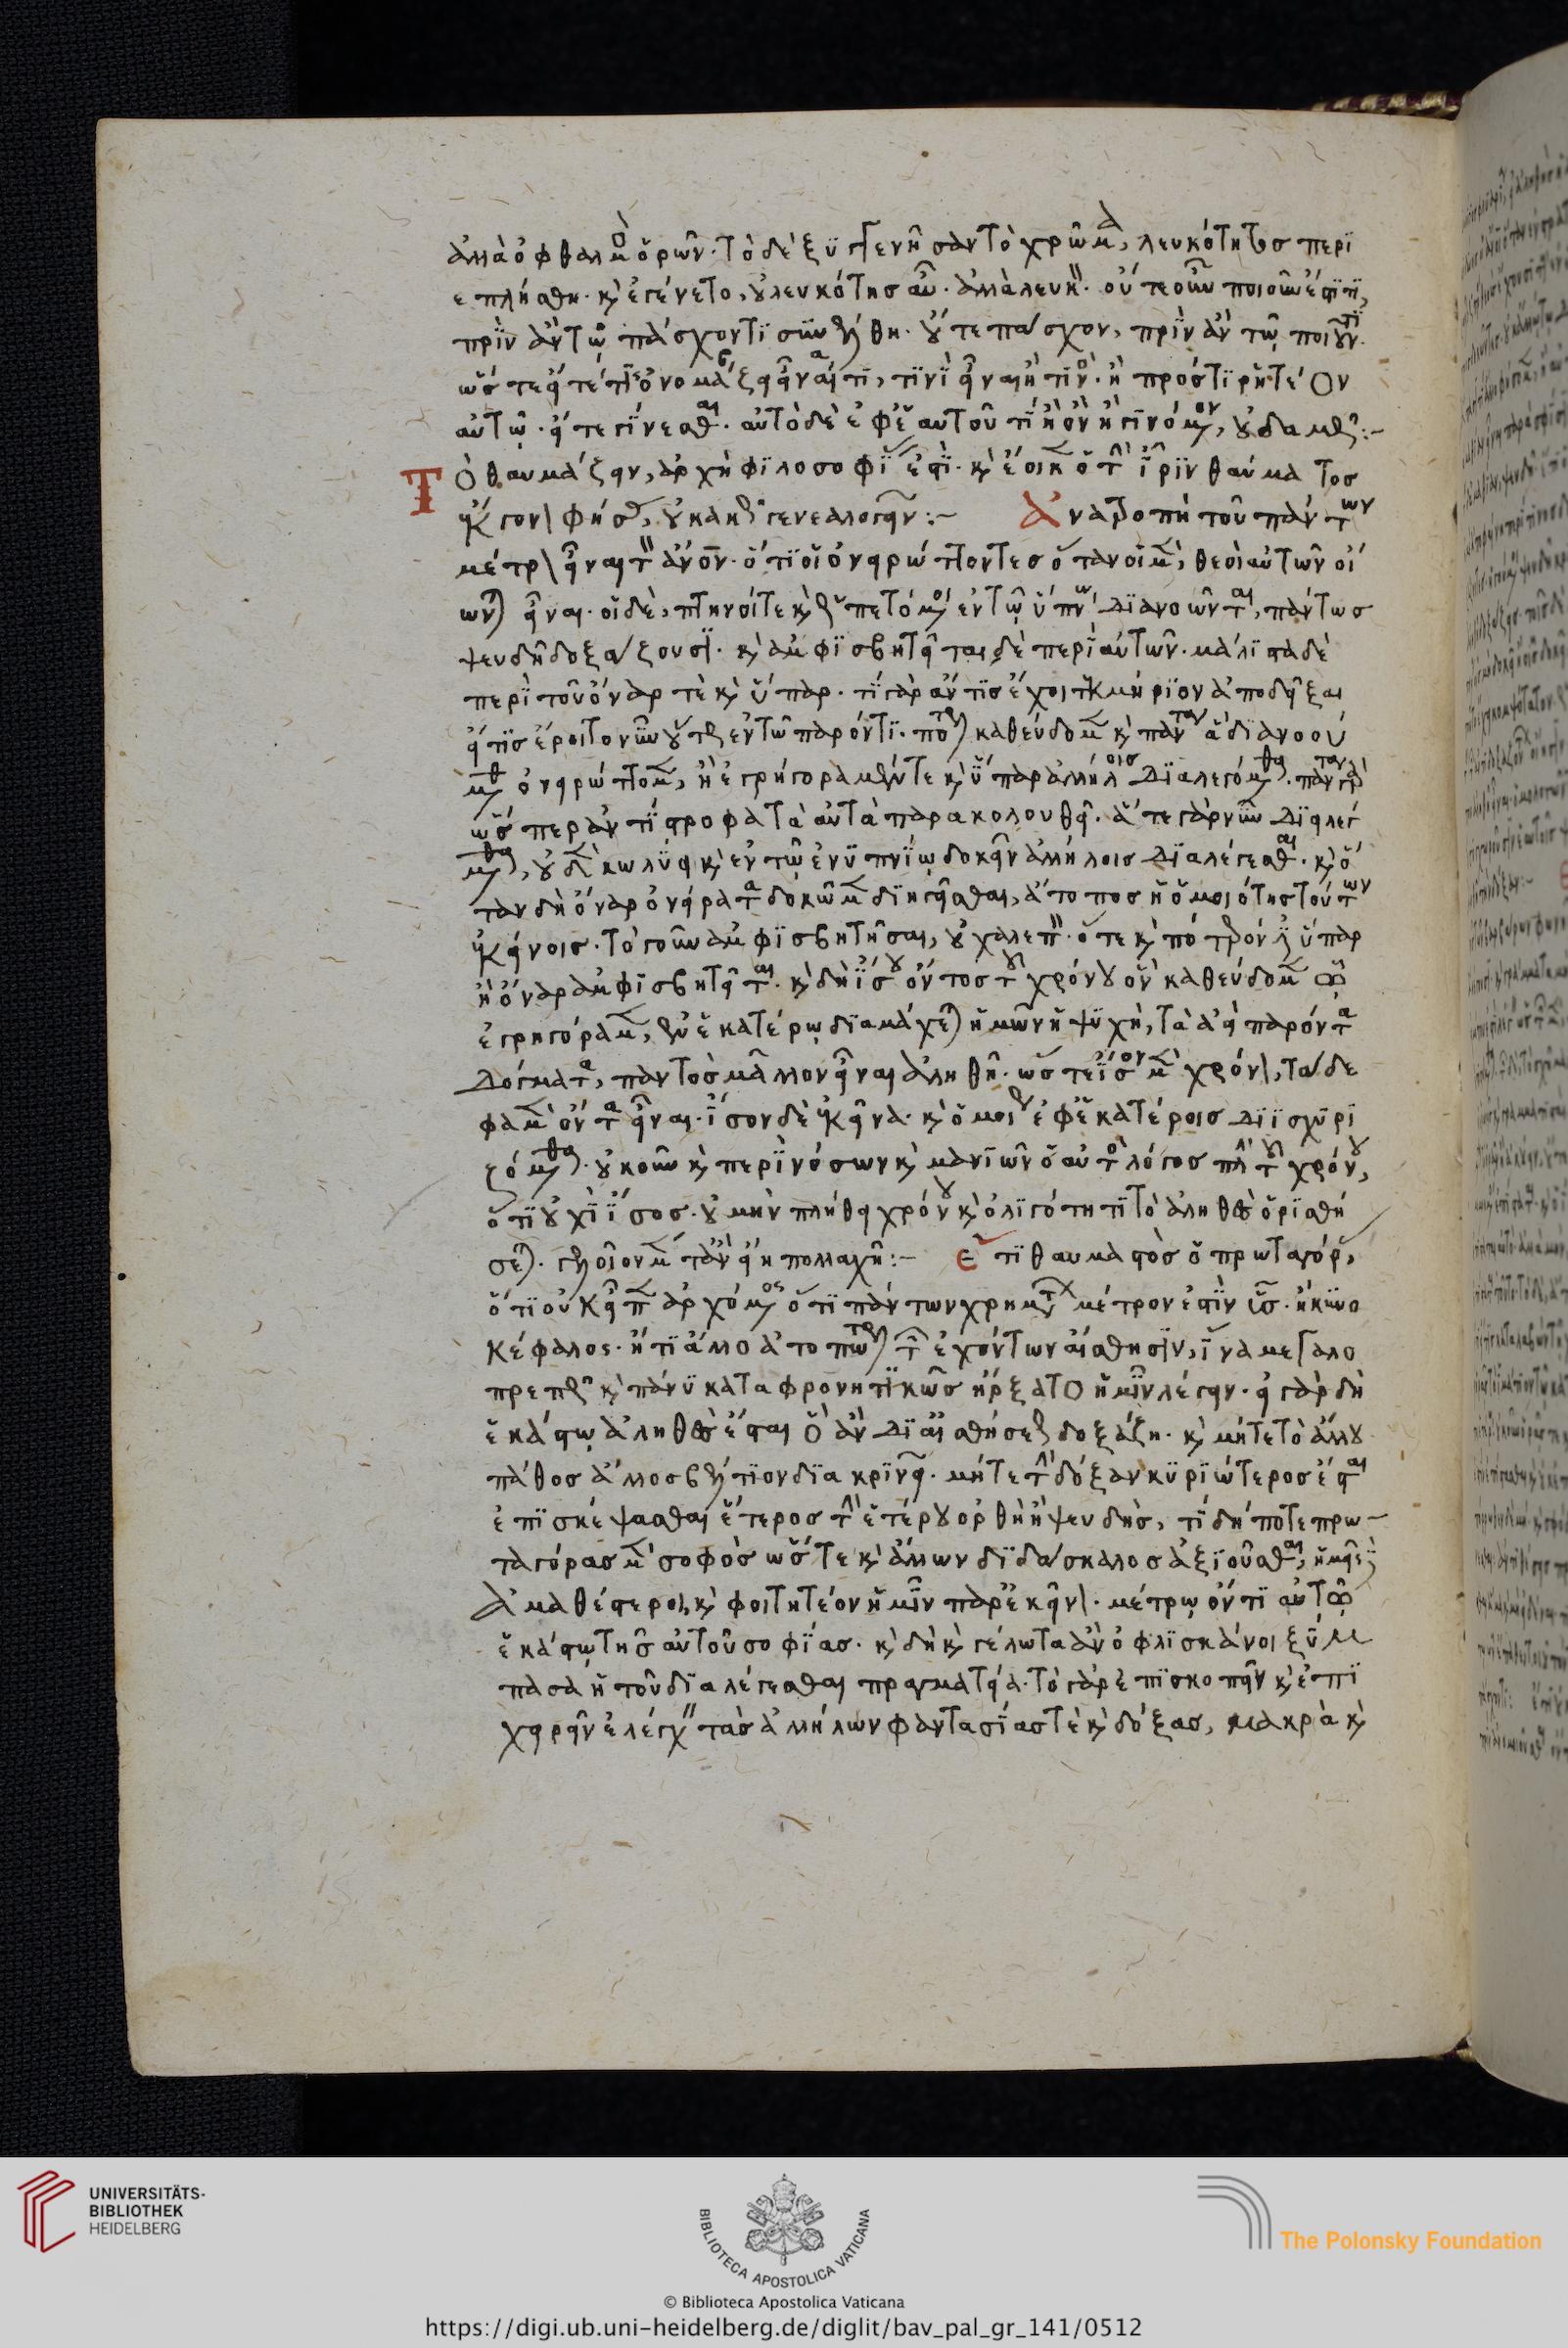 ἀλλὰ ὀφθαλμὸς ὁρῶν· τὸ δὲ ξυγγενῆσαν τὸ χρῶμα, λευκότητος περι
επλήσθη· καὶ ἐγένετο, οὐ λευκότης αὖ· ἀλλὰ λευκὸν· οὔτε οὖν ποιοῦν ἐστί τι,
πρὶν ἂν τῷ πάσχοντι συνέλθη· οὔτε πάσχον, πρὶν ἂν τῷ ποιοῦντι·
ὥστε εἴτέ τις ὀνομάζει εἶναί τι, τινὶ εἶναι ἢ τινὸς· ἢ πρός τι ῥητέον
αὐτῷ· εἴτε γίνεσθαι· αὐτὸ δὲ ἐφ' ἑαυτοῦ τὶ ἢ ὂν ἢ γινόμενον, οὐδαμῶς:-
Τὸ θαυμάζειν, ἀρχὴ φιλοσοφίας ἐστὶ· καὶ ἔοικεν ὁ τὴν ἶριν θαύματος
ἔκγονον φήσας, οὐ κακῶς γενεαλογεῖν:- Ἀνατροπὴ τοῦ πάντων
μέτρον εἶναι τὸν ἄνον· ὅτι οἱ ὀνειρώττοντες ὅταν οἱ μὲν, θεοὶ αὐτῶν οἴ
ωνται εἶναι· οἱ δὲ, πτηνοί τε καὶ ὡς πετόμενοι ἐν τῷ ὕπνῳ διανοῶνται, πάντως
ψευδῆ δοξάζουσι· καὶ ἀμφισβητεῖται δὲ περὶ αὐτῶν· μάλιστα δὲ
περὶ τοῦ ὄναρ τὲ καὶ ὕπαρ· τί γὰρ ἄν τις ἔχοι τεκμήριον ἀποδεῖξαι
εἴ τις ἔροιτο νῦν οὕτως ἐν τῷ παρόντι· πότερον καθεύδομεν καὶ πάντα ἃ διανοού
μεθα ὀνειρώττομεν, ἢ ἐγρηγόραμέν τε καὶ ὕπαρ ἀλλήλοις διαλεγόμεθα· πάντα γὰρ
ὥσπερ ἀντίστροφα τὰ αὐτὰ παρακολουθεῖ· ἅ τε γὰρ νῦν διειλέγ
μεθα, οὐδὲν κωλύει καὶ ἐν τῷ ἐνυπνίῳ δοκεῖν ἀλλήλοις διαλέγεσθαι· καὶ ὅ
ταν δὴ ὄναρ ὀνείρατα δοκῶμεν διηγεῖσθαι, ἄτοπος ἡ ὁμοιότης τούτων
ἐκείνοις· τὸ γοῦν ἀμφισβητῆσαι, οὐ χαλεπὸν· ὅτε καὶ πότερόν ἐστιν ὕπαρ
ἢ ὄναρ ἀμφισβητεῖται· καὶ δὴ ἴσου ὄντος τοῦ χρόνου ὃν καθεύδομεν ᾧ
ἐγρηγόραμεν, ἐν ἑκατέρῳ διαμάχεται ἡμῶν ἡ ψυχὴ, τὰ ἀεὶ παρόντα
δόγματα, παντὸς μᾶλλον εἶναι ἀληθῆ· ὥστε ἴσον μὲν χρόνον, τάδε
φαμὲν ὄντα εἶναι· ἴσον δὲ ἐκεῖνα· καὶ ὁμοίως ἐφ' ἑκατέροις διισχυρι
ζόμεθα· οὐκοῦν καὶ περὶ νόσων καὶ μανιῶν ὁ αὐτὸς λόγος πλὴν τοῦ χρόνου,
ὅτι οὐχὶ ἴσος· οὐ μὴν πλήθει χρόνου καὶ ὀλιγότητι τὸ ἀληθὲς ὁρισθή
σεται· γελοῖον μὲν τἂν εἴη πολλαχῆ:- Ἔτι θαυμαστὸς ὁ πρωταγόρας,
ὅτι οὐκ εἶπεν ἀρχόμενος ὅτι πάντων χρημάτων μέτρον ἐστὶν ὗς· ἢ κυνο
κέφαλος· ἤ τι ἄλλο ἀτοπώτερον τῶν ἐχόντων αἴσθησιν, ἵνα μεγαλο
πρεπῶς καὶ πάνυ καταφρονητικῶς ἤρξατο ἡμῖν λέγειν· εἰ γὰρ δὴ
ἑκάστῳ ἀληθὲς ἔσται ὃ ἂν δι' αἰσθήσεως δοξάζη· καὶ μήτε τὸ ἄλλου
πάθος ἄλλος βέλτιον διακρινεῖ· μήτε τὴν δόξαν κυριώτερος ἔσται
ἐπισκέψασθαι ἕτερος τὴν ἑτέρου ὀρθὴ ἢ ψευδὴς, τί δήποτε πρω-
ταγόρας μὲν σοφὸς ὥστε καὶ ἄλλων διδάσκαλος ἀξιοῦσθαι, ἡμεῖς δὲ
ἀμαθέστεροι, καὶ φοιτητέον ἡμῖν παρ' ἐκεῖνον· μέτρῳ ὄντι αὐτῷ
ἑκάστῳ τῆς αὐτοῦ σοφίας· καὶ δὴ καὶ γέλωτα ἂν ὀφλισκάνοι ξυμ
πασα ἡ τοῦ διαλέγεσθαι πραγματεία· τὸ γὰρ ἐπισκοπεῖν καὶ ἐπι
χειρεῖν ἐλέγχειν τὰς ἀλλήλων φαντασίας τὲ καὶ δόξας, μακρὰ καὶ
UNIVERSITÄTS-
BIBLIOTHEK
HEIDELBERG
BIBLIOTECA APOSTOLICA VATICANA
The Polonsky Foundation
© Biblioteca Apostolica Vaticana
https://digi.ub.uni-heidelberg.de/diglit/bav_pal_gr_141/0512